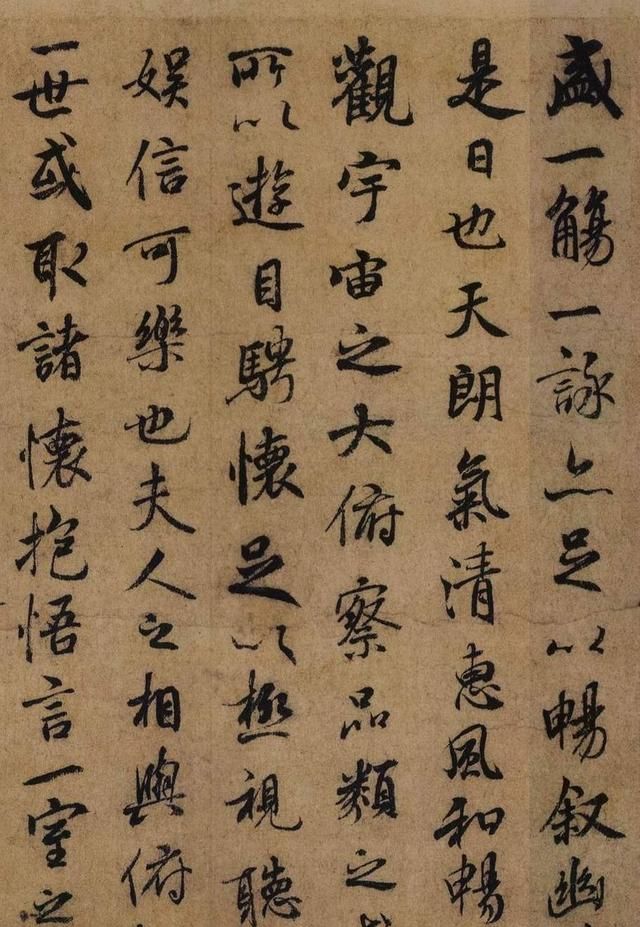 盛一觴一詠亦足以暢叙幽
是日也天朗氣清惠風和暢
觀宇宙之大俯察品類之
所以遊目騁懷足以極視聽
娱信可樂也夫人之相與俯
一世或取諸懷抱悟言一室之